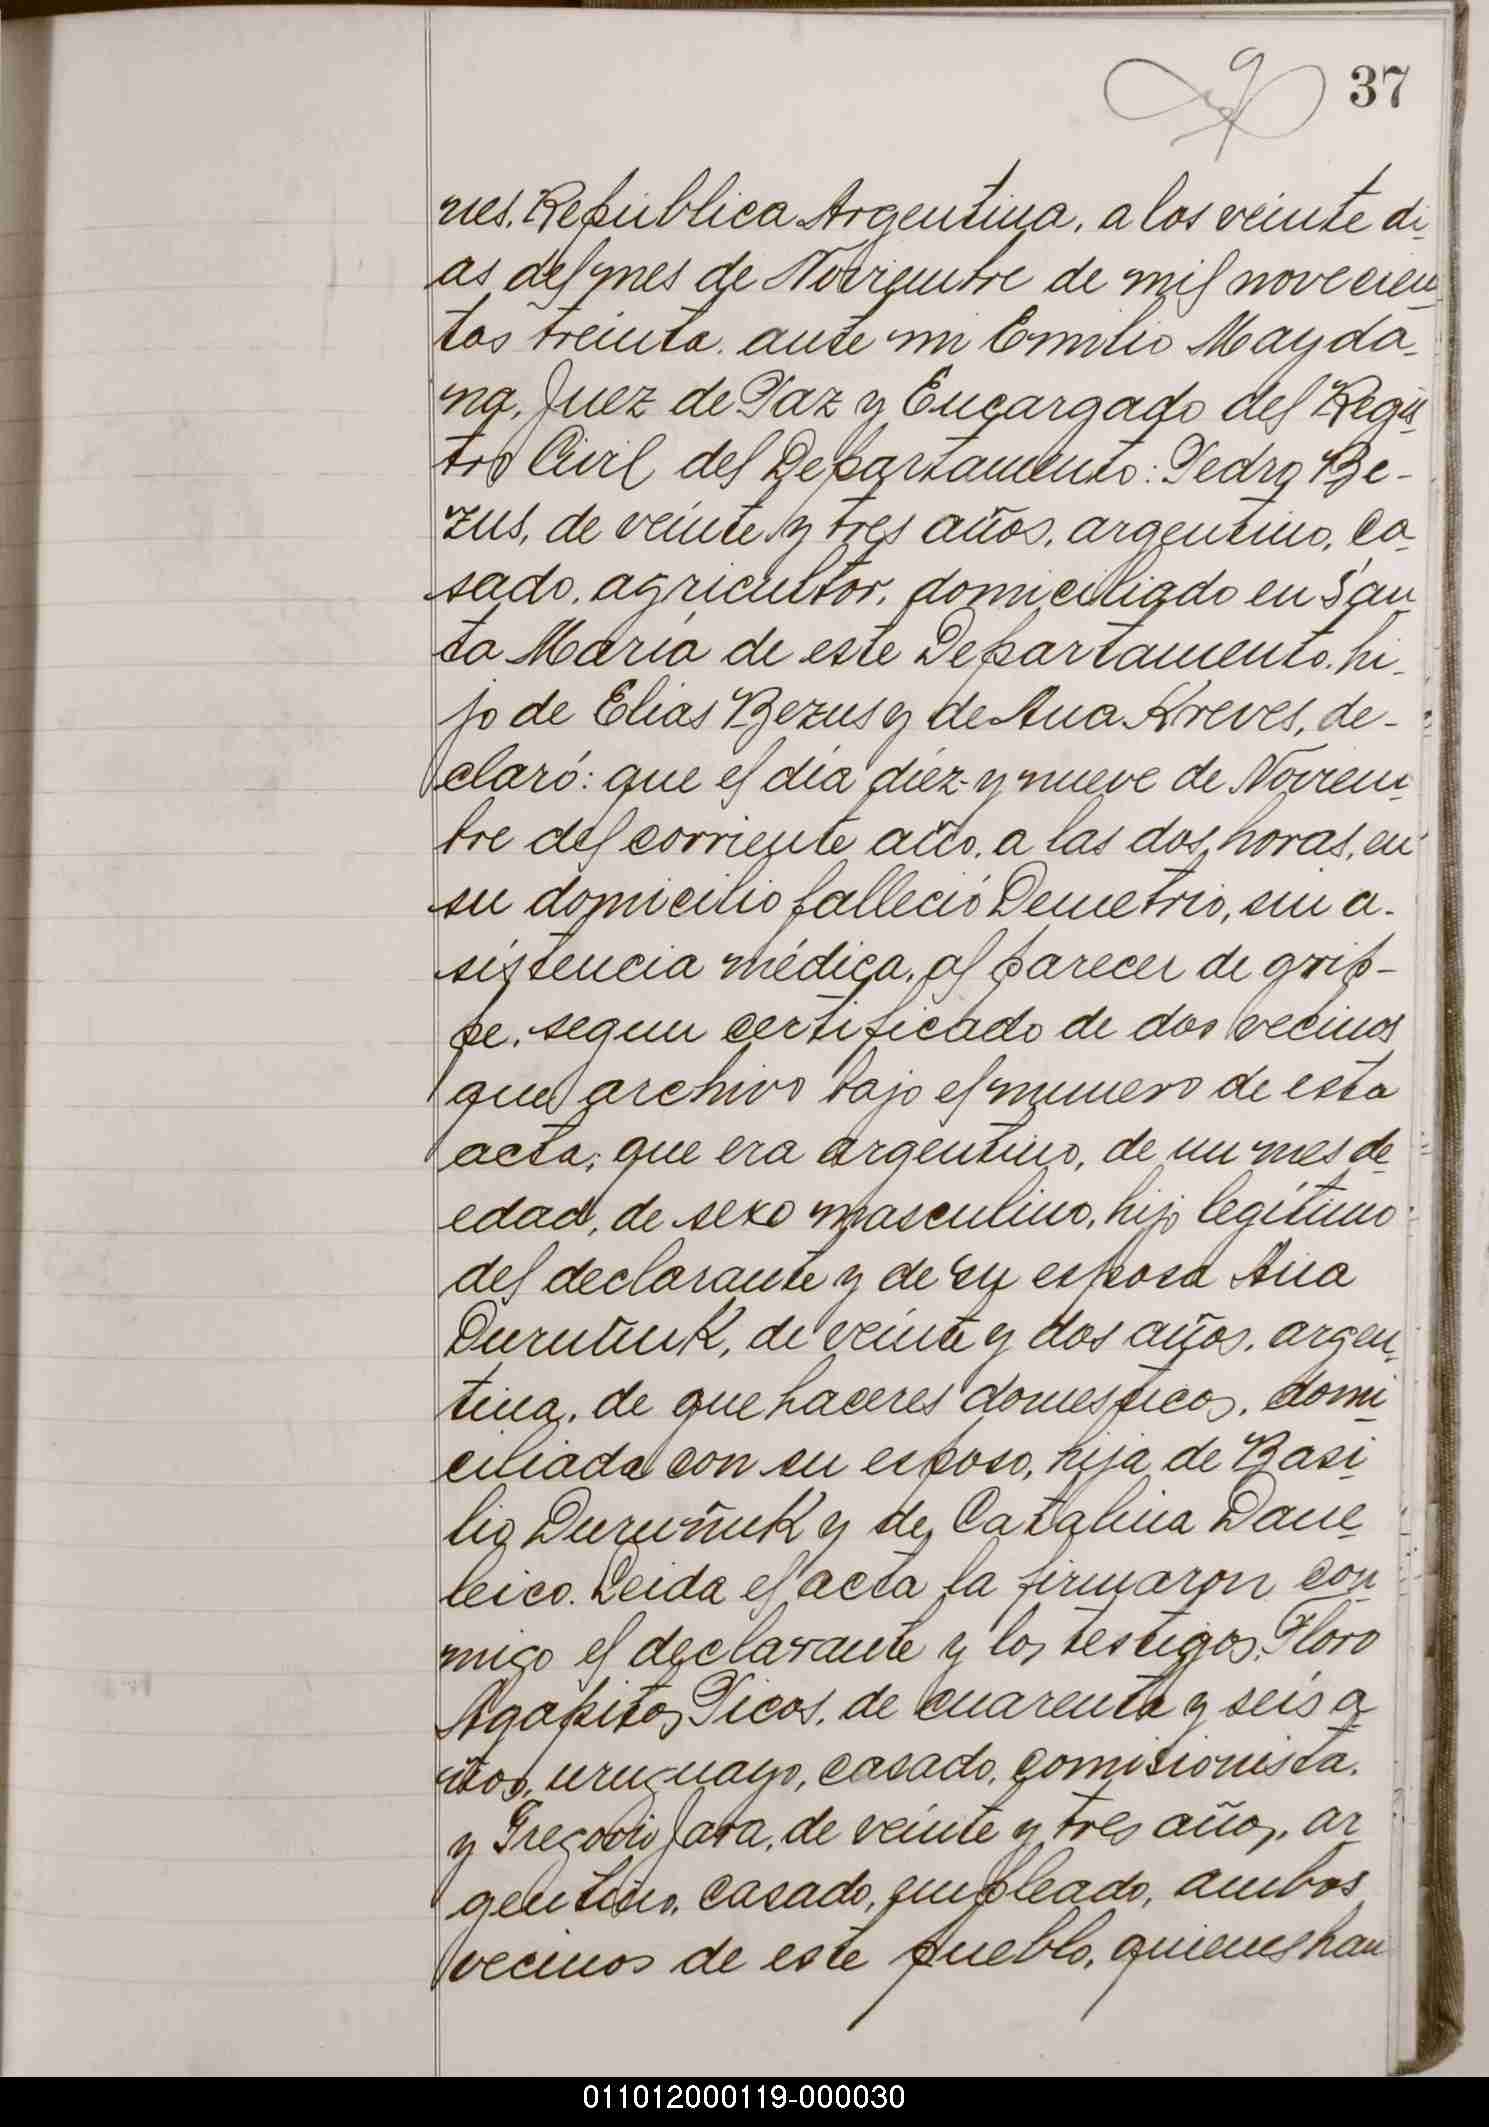 37
nes, República Argentina, a los veinte di-
as del mes de Noviembre de mil novecien-
tos treinta. ante mi Emilio Mayda-
na, Juez de Paz y Encargado del Regis-
tro Civil del Departamento: Pedro Be-
zus, de veinte y tres años, argentino, ca-
sado, agricultor, domiciliado en San-
ta María de este Departamento, hi-
jo de Elias Bezus y de Ana Kreves, de-
claró: que el día diéz y nueve de Noviem-
bre del corriente año, a las dos horas, en
su domicilio falleció Demetrio, sin a-
sistencia médica, al parecer de grip-
pe, segun certificado de dos vecinos
que archivo bajo el numero de esta
acta; que era argentino, de un mes de
edad, de sexo masculino, hijo legítimo
del declarante y de su esposa Ana
Duruñuk, de veinte y dos años, argen-
tina, de quehaceres domesticos, domi-
ciliada con su esposo, hija de Basi-
lio Duruñuk y de Catalina Dane-
leico. Leida el acta la firmaron con-
migo el declarante y los testigos: Floro
Agapito Picos, de cuarenta y seis a-
ños, uruguayo, casado, comisionista,
y Gregorio Jara, de veinte y tres años, ar-
gentino, casado, empleado, ambos
vecinos de este pueblo, quienes han
011012000119-000030